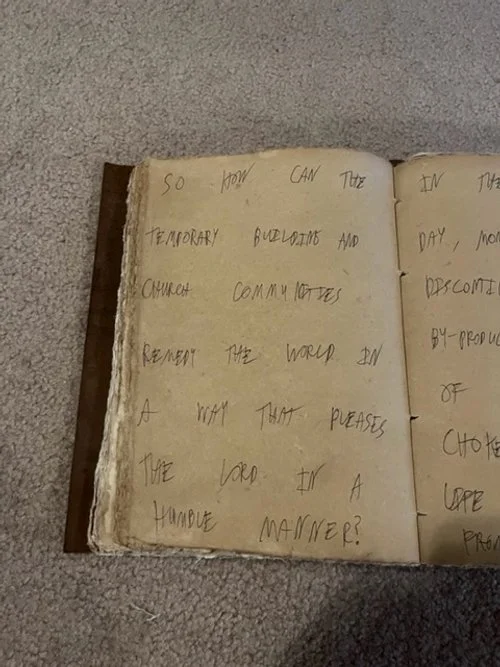 SO HOW CAN THE
TEMPORARY BUILDING AND
CHURCH COMMUNITIES
REMEDY THE WORLD IN
A WAY THAT PLEASES
THE LORD IN A
HUMBLE MANNER?
IN THE
DAY, MON
DISCONTIN
BY-PRODUC
OF
CHOKE